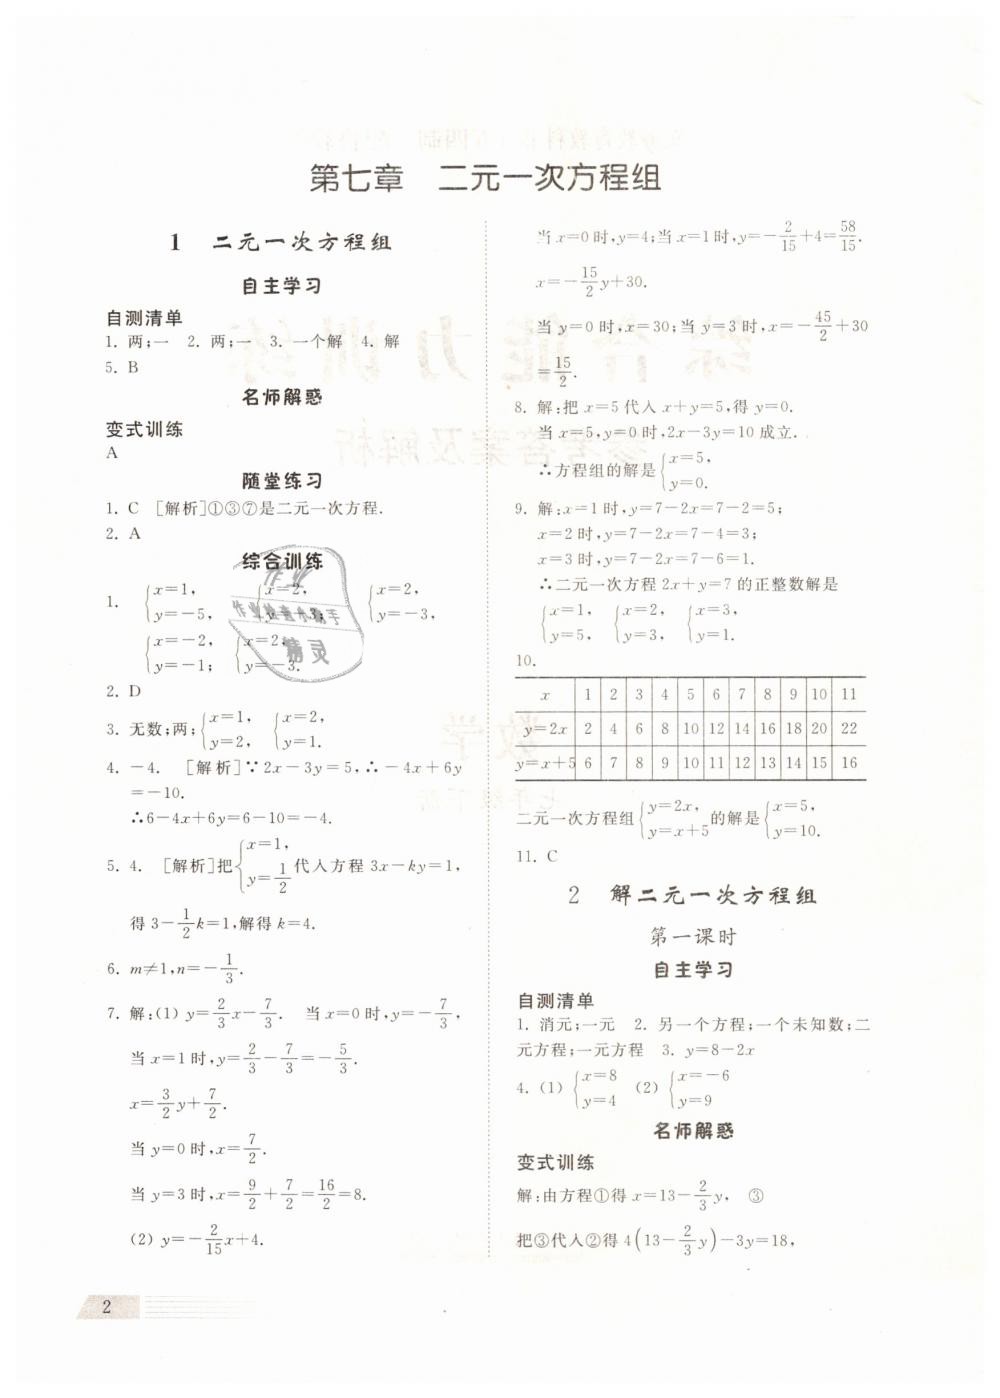 第七章　二元一次方程组
1　二元一次方程组
自主学习
自测清单
1. 两;一　2. 两;一　3. 一个解　4. 解
5. B
名师解惑
变式训练
A
随堂练习
1. C　[解析]①③⑦是二元一次方程.
2. A
综合训练
1. {x=1, y=-5, {x=2, y=-3; {x=2, y=-3,
{x=-2, y=-1; {x=2, y=-3.
2. D
3. 无数;两; {x=1, y=2, {x=2, y=1.
4. -4.　[解析]∵2x-3y=5,∴-4x+6y
=-10.
∴6-4x+6y=6-10=-4.
5. 4.　[解析]把{x=1, y=1/2 代入方程 3x-ky=1,
得 3-1/2k=1,解得 k=4.
6. m≠1,n=-1/3.
7. 解:(1) y=2/3x-7/3.　当 x=0 时,y=-7/3,
当 x=1 时,y=2/3-7/3=-5/3.
x=3/2y+7/2.
当 y=0 时,x=7/2.
当 y=3 时,x=9/2+7/2=16/2=8.
(2) y=-2/15x+4.
当 x=0 时,y=4;当 x=1 时,y=-2/15+4=58/15.
x=-15/2y+30.
当 y=0 时,x=30;当 y=3 时,x=-45/2+30
=15/2.
8. 解:把 x=5 代入 x+y=5,得 y=0.
当 x=5,y=0 时,2x-3y=10 成立.
∴方程组的解是{x=5, y=0.
9. 解:x=1 时,y=7-2x=7-2=5;
x=2 时,y=7-2x=7-4=3;
x=3 时,y=7-2x=7-6=1.
∴二元一次方程 2x+y=7 的正整数解是
{x=1, y=5, {x=2, y=3, {x=3, y=1.
10.
x 1 2 3 4 5 6 7 8 9 10 11
y=2x 2 4 6 8 10 12 14 16 18 20 22
y=x+5 6 7 8 9 10 11 12 13 14 15 16
二元一次方程组{y=2x, y=x+5 的解是{x=5, y=10.
11. C
2　解二元一次方程组
第一课时
自主学习
自测清单
1. 消元;一元　2. 另一个方程;一个未知数;二
元方程;一元方程　3. y=8-2x
4. (1) {x=8 y=4　(2) {x=-6 y=9
名师解惑
变式训练
解:由方程①得 x=13-2/3y,　③
把③代入②得 4(13-2/3y)-3y=18,
2